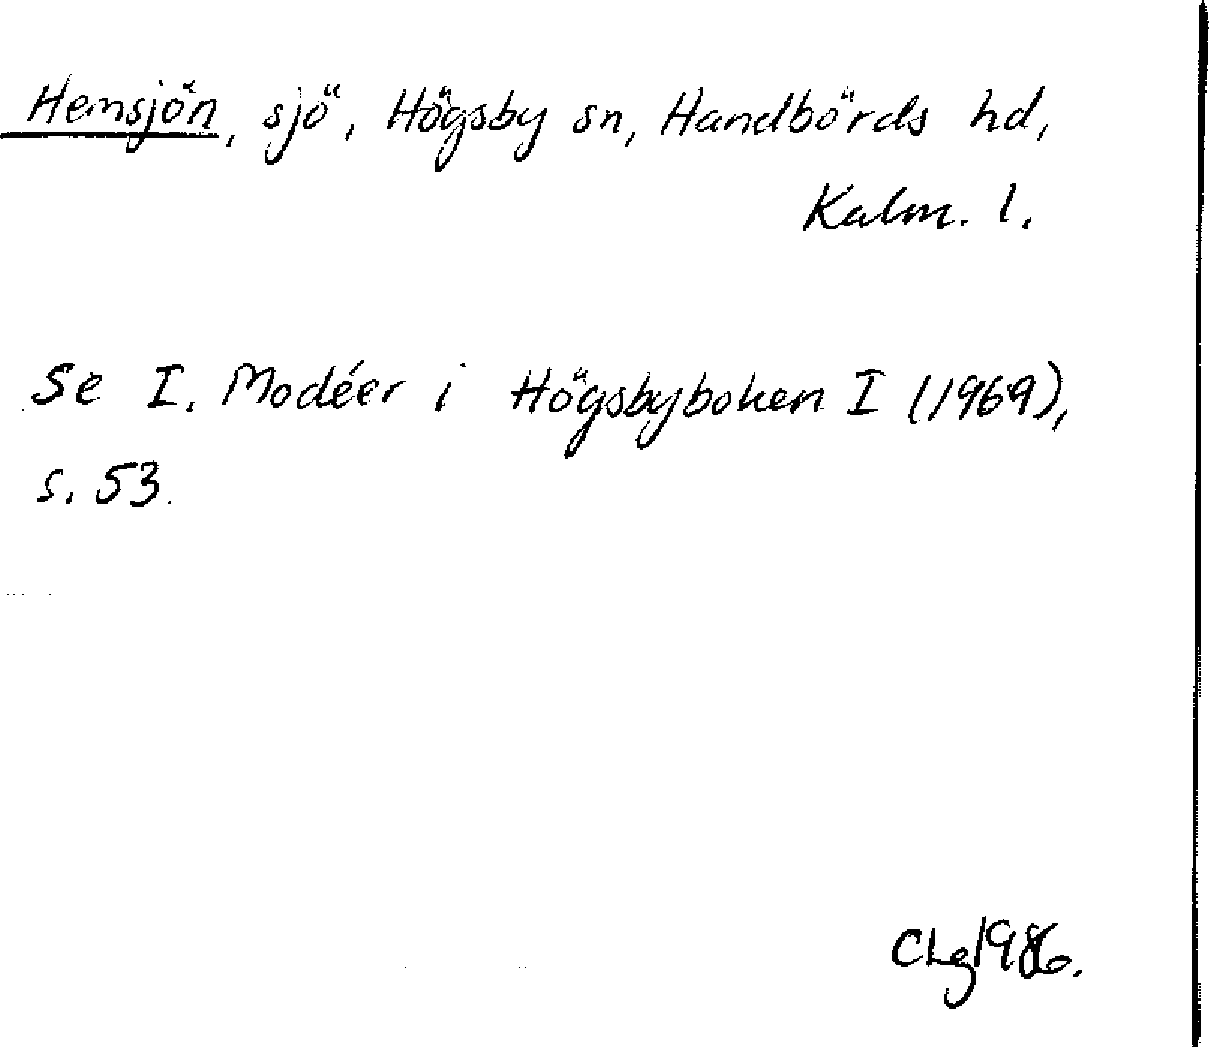 Hemsjön, sjö, Högsby sn, Handbörds hd,
Kalm. l.
Se I. Modéer i Högsbyboken I (1969),
s. 53.
CLg 1986.